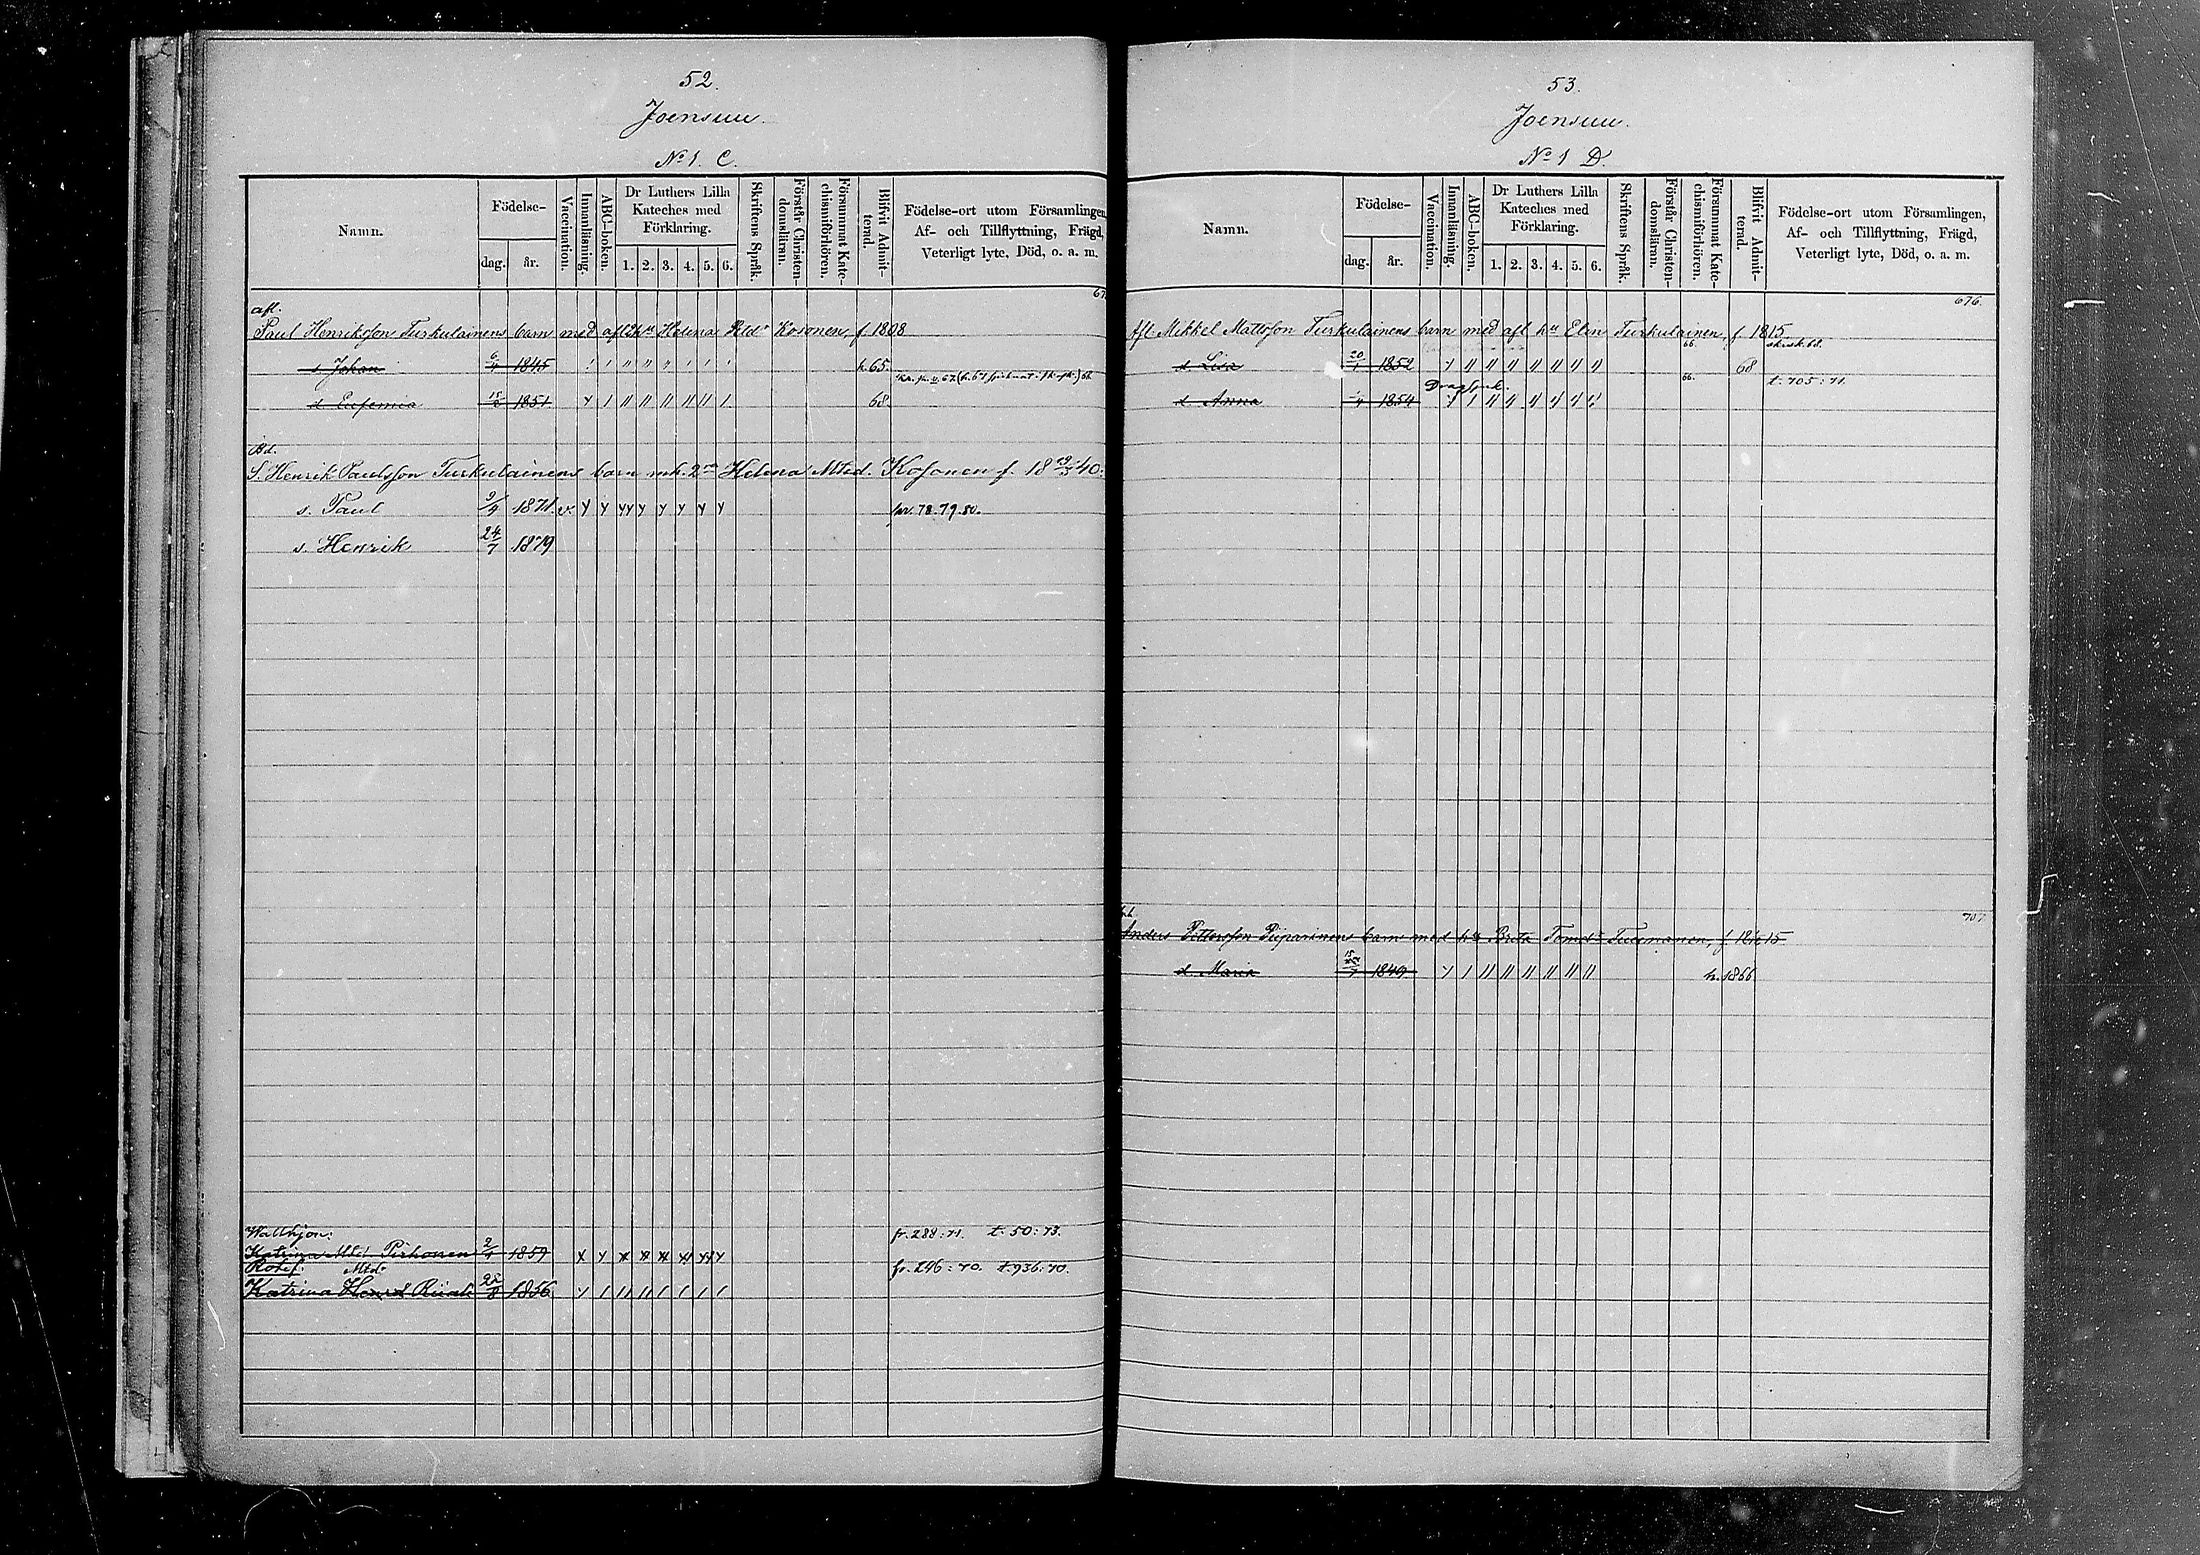 52.
Joensuu.
No 1. C.
Namn.
Födelse-
dag.
år.
Vaccination.
Innanläsning.
ABC-boken.
Dr Luthers Lilla Kateches med Förklaring.
1. 2. 3. 4. 5. 6.
Skriftens Språk.
Förstår Christendomsläran.
Försummat Katechismiförhören.
Blifvit Admitterad.
Födelse-ort utom Församlingen,
Af- och Tillflyttning, Frägd,
Veterligt lyte, Död, o. a. m.
afl.
Paul Henriksson Turkulainens barn med afl Helena Kosonen, f. 1808
s Johan 6/4 1845 h. 65.
d Eufemia 1851 68.
Bd.
S. Henrik Paulsson Turkulainens barn m. h. 2 Helena Mtsd. Kosonen f. 18 40.
s. Paul 9/4 1871 v. pr. 78. 79. 80.
s. Henrik 24/7 1879
Katrina Pirhonen 1859 fr. 288: 71. t. 50: 73.
Rotef. Mtd.
Katrina 1856 fr. 246: 70. t. 936: 70.
53.
Joensuu.
No 1 D.
Namn.
Födelse-
dag.
år.
Vaccination.
Innanläsning.
ABC-boken.
Dr Luthers Lilla Kateches med Förklaring.
1. 2. 3. 4. 5. 6.
Skriftens Språk.
Förstår Christendomsläran.
Försummat Katechismiförhören.
Blifvit Admitterad.
Födelse-ort utom Församlingen,
Af- och Tillflyttning, Frägd,
Veterligt lyte, Död, o. a. m.
676.
Afl. Mikkel Mattsson Turkulainens barn med afl hu Elin Turkulainen, f. 1815
d Lisa 20/1 1852 66. 68
d. Anna 1854 66. t. 705: 71.
707
Anders Pettersson Piiparinens barn med hu Brita Tomd. Tuermanen, f 1815
d. Maria 1849 h. 1866